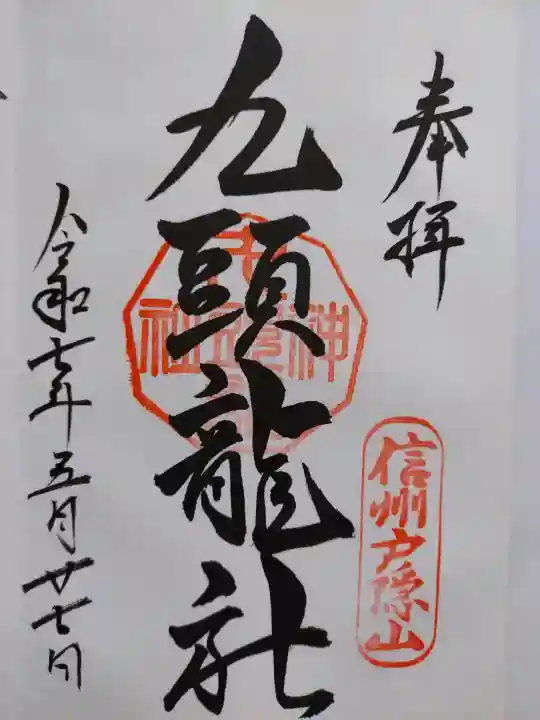 奉拝
信州戸隠山
九頭龍社
令和七年五月廿七日